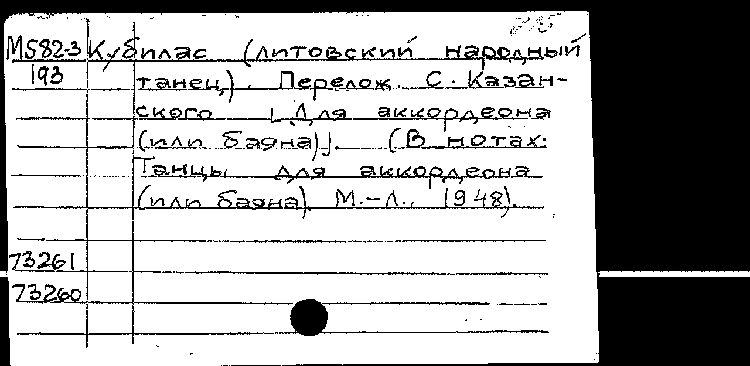 М582-3 Кубилас (литовский народный
193 танец). Перелож. С. Казан-
ского [Для аккордеона
(или баяна)]. (В нотах:
Танцы для аккордеона
(или баяна). М.-Л., 1948).
73261
73260